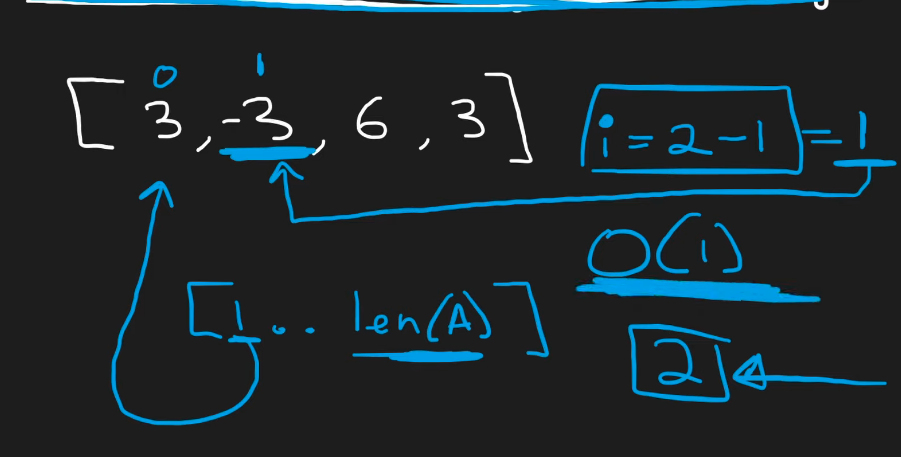 0 1
[ 3 , -3 , 6 , 3 ]
i = 2 - 1 = 1
O(1)
[ 1 .. len(A) ]
2